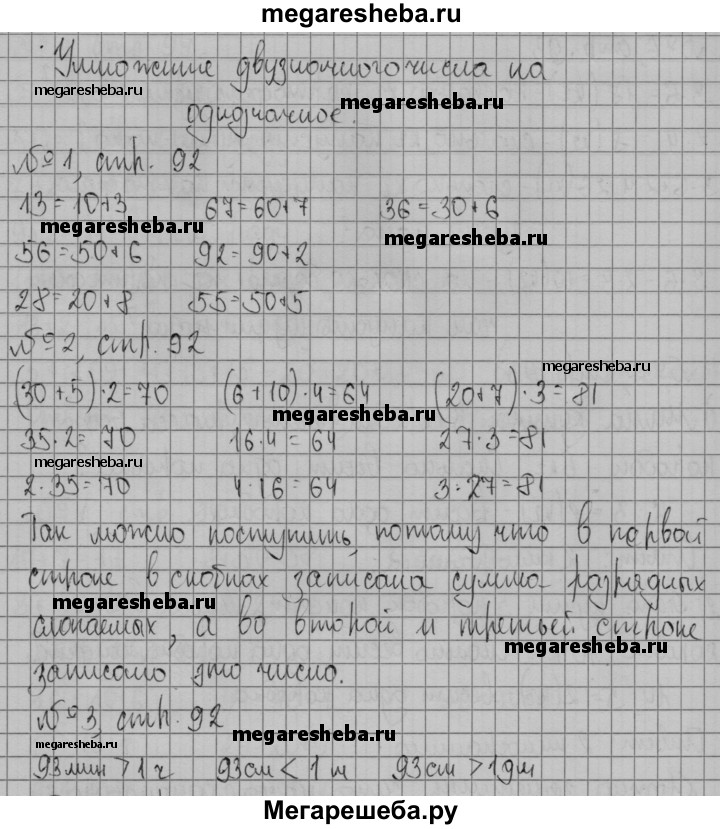 megaresheba.ru
Умножение двузначного числа на
megaresheba.ru megaresheba.ru
однозначное.
№ 1, стр. 92
13=10+3 67=60+7 36=30+6
megaresheba.ru megaresheba.ru
56=50+6 92=90+2
28=20+8 55=50+5
№ 2, стр. 92
megaresheba.ru
(30+5)·2=70 (6+10)·4=64 (20+7)·3=81
megaresheba.ru
35·2=70 16·4=64 27·3=81
megaresheba.ru
2·35=70 4·16=64 3·27=81
Так можно поступить, потому что в первой
строке в скобках записана сумма разрядных
megaresheba.ru
слагаемых, а во второй и третьей строке
megaresheba.ru
записано это число.
№ 3, стр. 92
megaresheba.ru
megaresheba.ru
93мин > 1 ч 93см < 1 м 93см > 1дм
Мегарешеба.ру